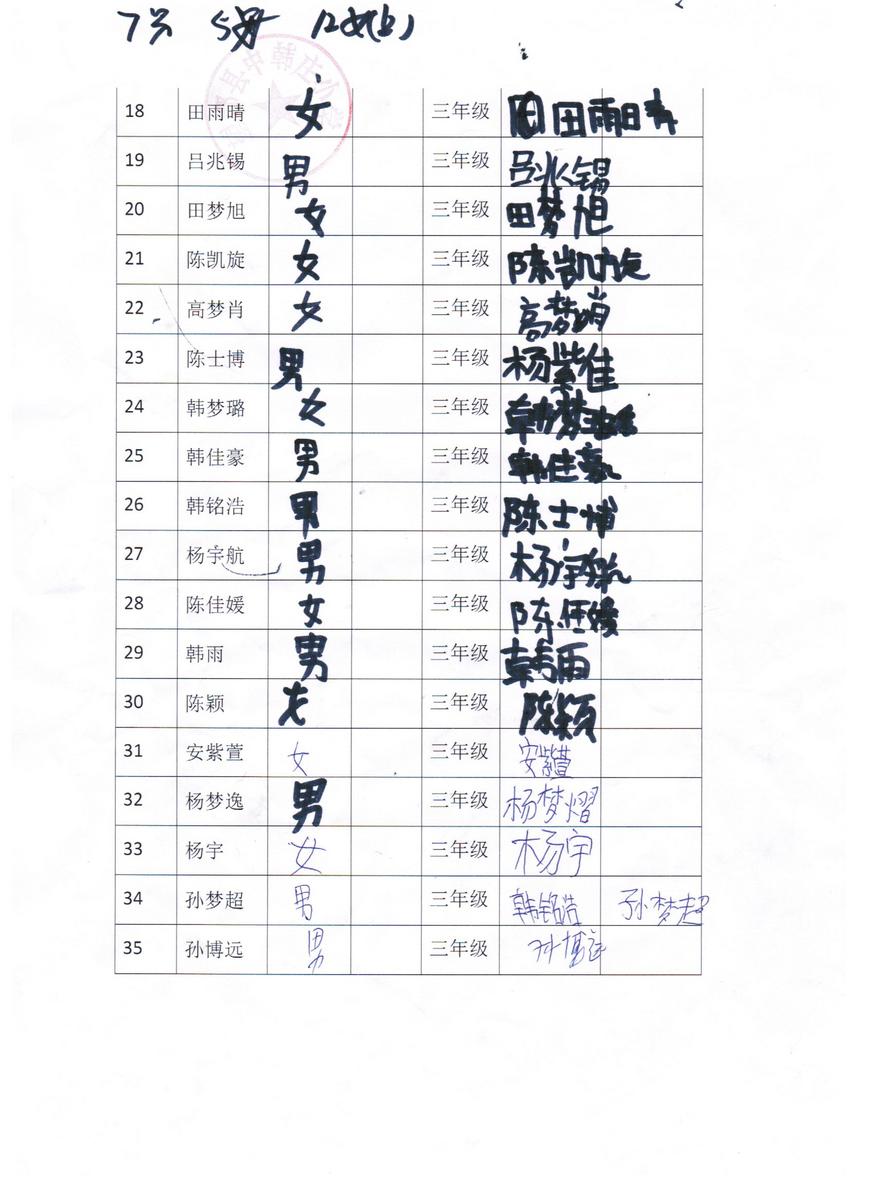 7男 5女 12
18 田雨晴 女 三年级 田雨晴
19 吕兆锡 男 三年级 吕兆锡
20 田梦旭 女 三年级 田梦旭
21 陈凯旋 女 三年级 陈凯旋
22 高梦肖 女 三年级 高梦肖
23 陈士博 男 三年级 杨紫佳
24 韩梦璐 女 三年级 韩梦
25 韩佳豪 男 三年级 韩佳豪
26 韩铭浩 男 三年级 陈士博
27 杨宇航 男 三年级 杨宇航
28 陈佳媛 女 三年级 陈佳媛
29 韩雨 男 三年级 韩雨
30 陈颖 三年级 陈颖
31 安紫萱 女 三年级 安紫萱
32 杨梦逸 男 三年级 杨梦熠
33 杨宇 女 三年级 杨宇
34 孙梦超 男 三年级 韩铭浩 孙梦超
35 孙博远 男 三年级 孙博远